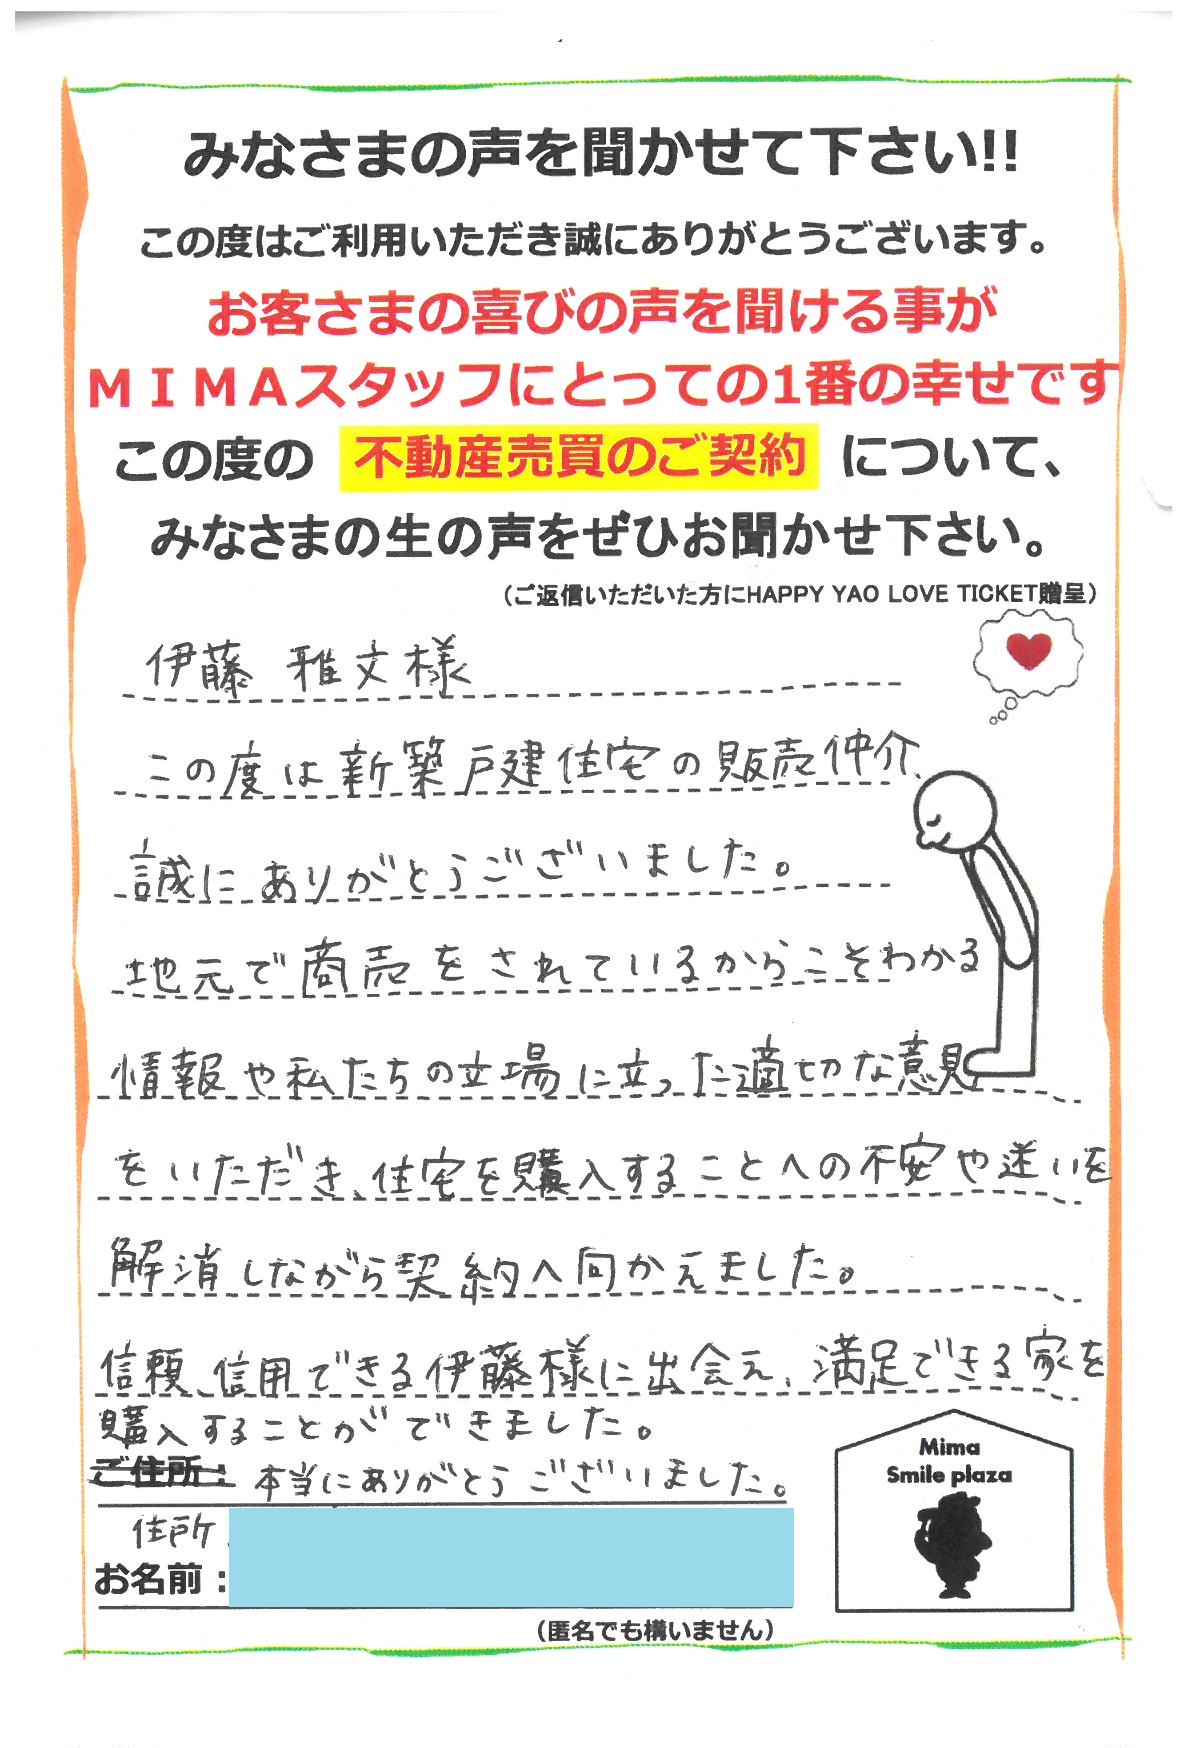 みなさまの声を聞かせて下さい!!
この度はご利用いただき誠にありがとうございます。
お客さまの喜びの声を聞ける事が
ＭＩＭＡスタッフにとっての1番の幸せです
この度の 不動産売買のご契約 について、
みなさまの生の声をぜひお聞かせ下さい。
（ご返信いただいた方にHAPPY YAO LOVE TICKET贈呈）
伊藤 雅文様
この度は新築戸建住宅の販売仲介、
誠にありがとうございました。
地元で商売をされているからこそわかる
情報や私たちの立場に立った適切な意見
をいただき、住宅を購入することへの不安や迷いを
解消しながら契約へ向かえました。
信頼、信用できる伊藤様に出会え、満足できる家を
購入することができました。
ご住所： 本当にありがとうございました。
住所
お名前：
（匿名でも構いません）
Mima
Smile plaza